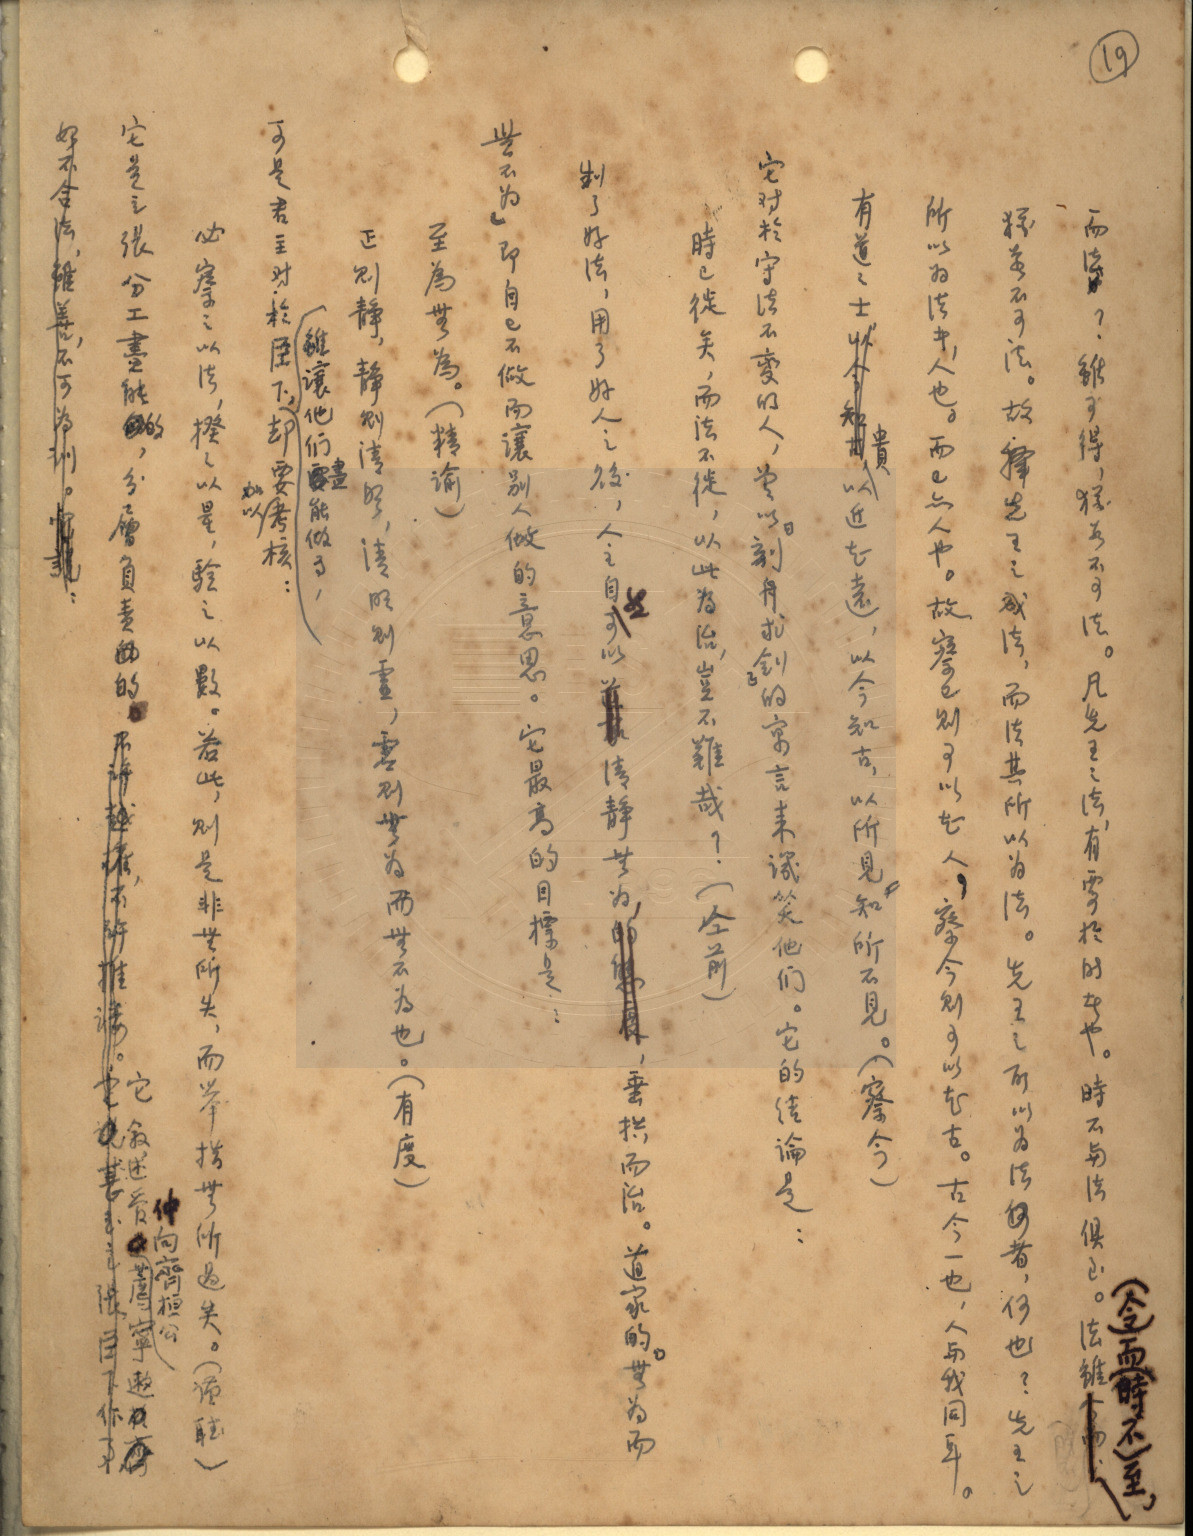 19
而法？雖可得，猶若不可法。凡先王之法，有要於時者也。時不與法俱至。法雖(今而時不)至，
猶若不可法。故釋先王之成法，而法其所以為法。先王之所以為法者，何也？先王之
所以為法者，人也。而己亦人也。故察己則可以知人，察今則可以知古。古今一也，人與我同耳。
有道之士，貴以近知遠，以今知古，以所見知所不見。(察今)
它对於守法不變的人，曾以刻舟求劍的寓言來譏笑他們。它的結論是：
時已徙矣，而法不徙，以此為治，豈不難哉？(仝前)
制了好法，用了好人之後，人主自可以清靜無為，垂拱而治。道家的「無為而
無不為」即自己不做而讓別人做的意思。它最高的目標是：
至為無為。(精諭)
正則靜，靜則清明，清明則虛，虛則無為而無不為也。(有度)
可是君主对於臣下，雖讓他們盡能做事，却要加以考核：
必察之以法，揆之以量，驗之以數。若此，則是非無所失，而舉措無所過矣。(謹聽)
它是主張分工盡能的，分層負責的。它敘述管仲向齊桓公薦寧遫
好不合法，雖善，不可為訓。